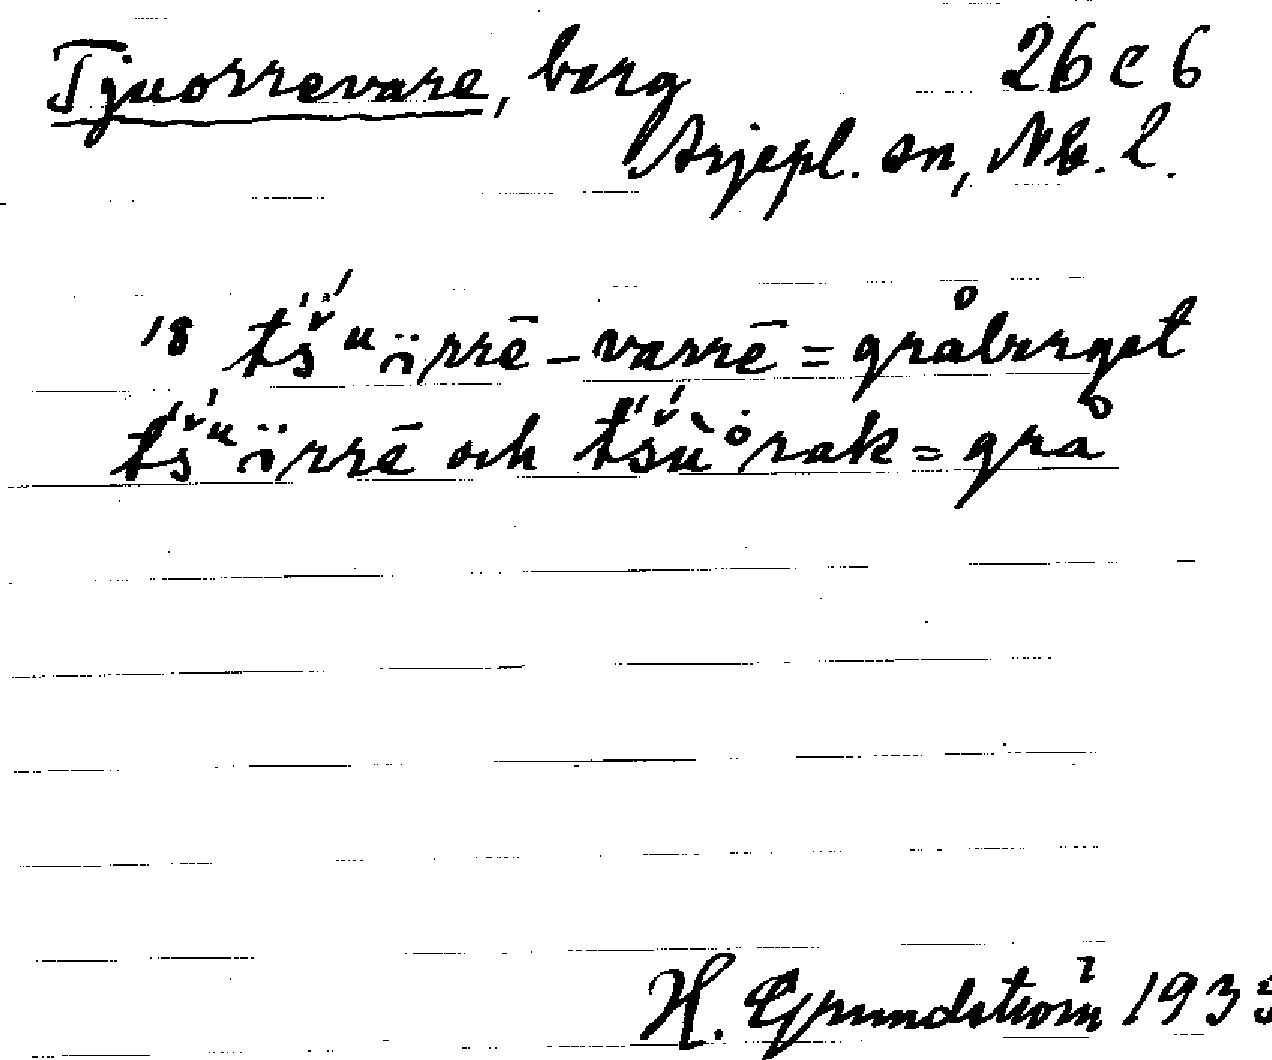 Tjuorrevare, berg 26 C 6
Arjepl. sn, Nb. l.
18 tš́ᵘȯ̈rrē-varrē = gråberget
tš́ᵘȯ̈rrē och tš́ùȯrak = grå
H. Grundström 1935